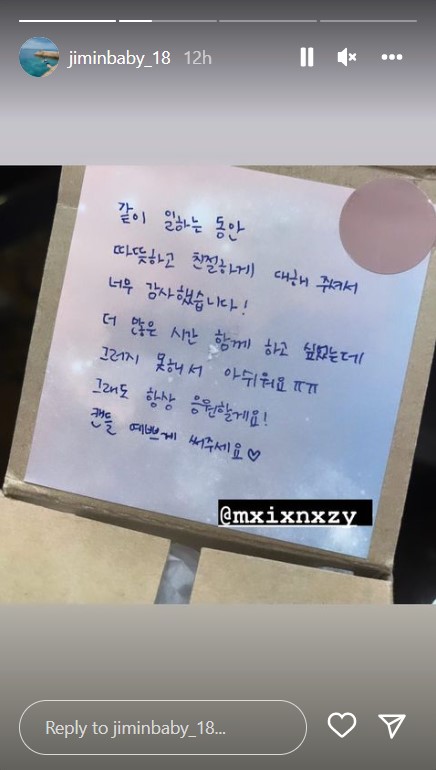 jiminbaby_18 12h
같이 일하는 동안
따뜻하고 친절하게 대해 줘서
너무 감사했습니다!
더 많은 시간 함께 하고 싶었는데
그러지 못해서 아쉬워요ㅠㅠ
그래도 항상 응원할게요!
캔들 예쁘게 써주세요♡
@mxixnxzy
Reply to jiminbaby_18...